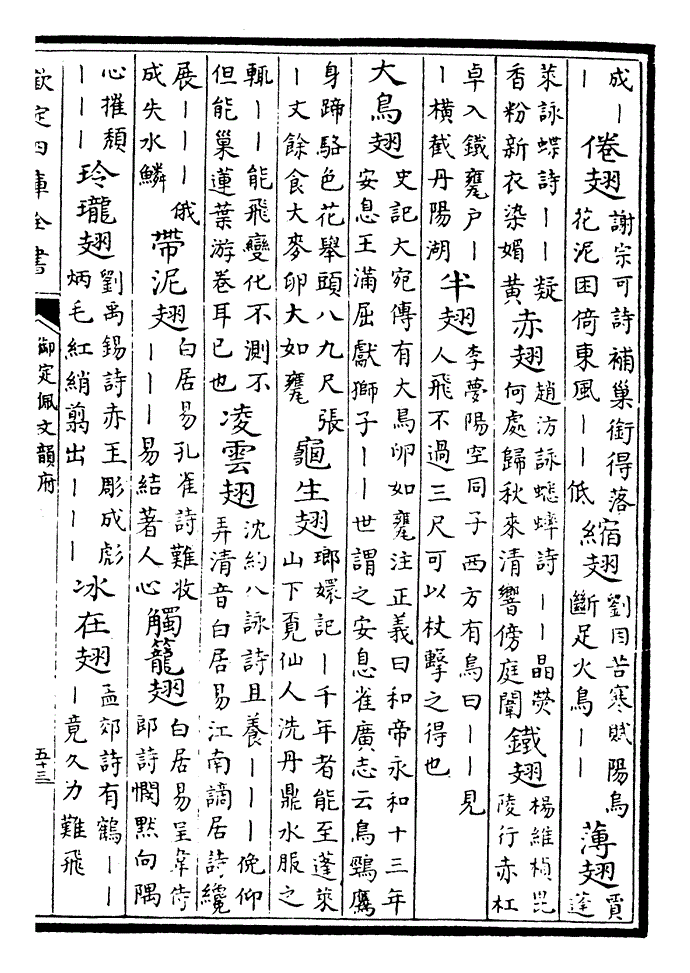 成｜｜倦翅謝宗可詩補巢銜得落花泥困倚東風｜｜低縮翅劉因苦寒賦陽烏斷足火鳥｜｜薄翅賈蓬
萊詠蝶詩｜｜擬香粉新衣染媚黃赤翅趙汸詠蟋蟀詩｜｜晶熒何處歸秋來清響傍庭闈鐵翅楊維楨毘陵行赤杠
卓入鐵甕戶｜｜橫截丹陽湖半翅李夢陽空同子西方有鳥曰｜｜見人飛不過三尺可以杖擊之得也
大鳥翅史記大宛傳有大鳥卵如甕注正義曰和帝永和十三年安息王滿屈獻獅子｜｜世謂之安息雀廣志云鳥鶚鷹
身蹄駱色花舉頭八九尺張｜丈餘食大麥卵大如甕龜生翅瑯嬛記｜千年者能至蓬萊山下覓仙人洗丹鼎水服之
輒｜｜能飛變化不測不但能巢蓮葉游卷耳已也凌雲翅沈約八詠詩且養｜｜｜俛仰弄清音白居易江南謫居詩纔
展｜｜｜俄成失水鱗帶泥翅白居易孔雀詩難收｜｜｜易結著人心觸籠翅白居易呈韋侍郎詩憫默向隅
心摧頹｜｜｜玲瓏翅劉禹錫詩赤玉彫成彪炳毛紅綃翦出｜｜｜冰在翅孟郊詩有鶴｜｜｜竟久力難飛
欽定四庫全書
御定佩文韻府
五十三